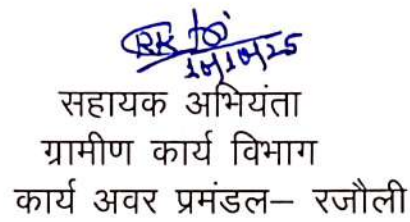 सहायक अभियंता
ग्रामीण कार्य विभाग
कार्य अवर प्रमंडल– रजौली